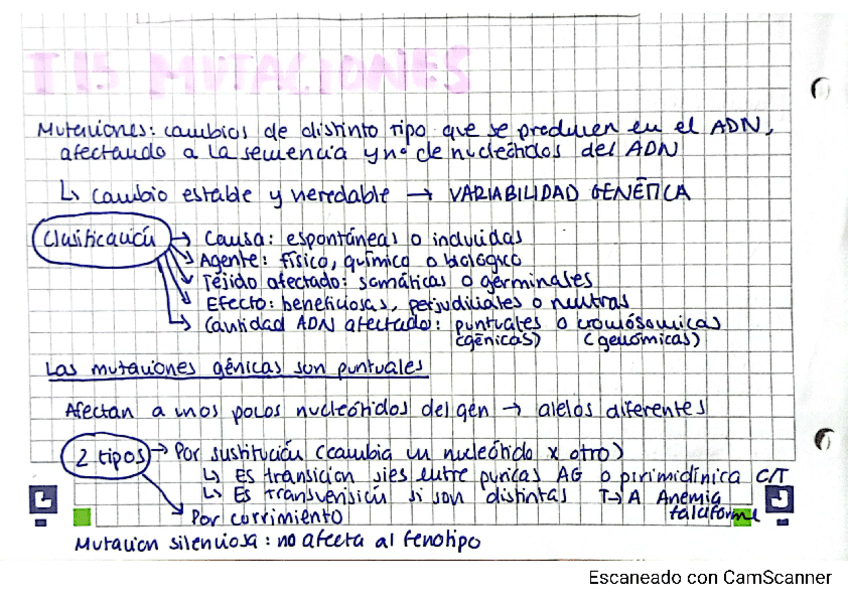 T 15 MUTACIONES
Mutaciones: cambios de distinto tipo que se producen en el ADN,
afectando a la secuencia y nº de nucleótidos del ADN
↳ cambio estable y heredable → VARIABILIDAD GENÉTICA
Clasificación → Causa: espontáneas o inducidas
Agente: físico, químico o biológico
Tejido afectado: somáticas o germinales
Efecto: beneficiosas, perjudiciales o neutras
Cantidad ADN afectado: puntuales o cromósomicas
(génicas) (genómicas)
Las mutaciones génicas son puntuales
Afectan a unos pocos nucleótidos del gen → alelos diferentes
2 tipos → Por sustitución (cambia un nucleótido x otro)
↳ Es transición si es entre puricas AG o pirimidínica C/T
↳ Es transversión si son distintas T→A Anemia
falciforme
→ Por corrimiento
Mutación silenciosa: no afecta al fenotipo
Escaneado con CamScanner